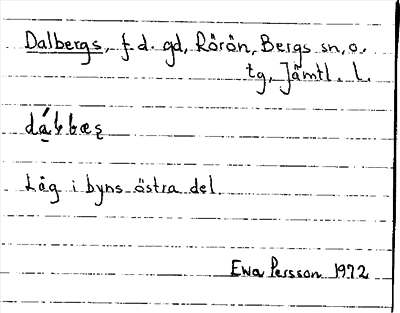 Dalbergs, f. d. gd, Rörön, Bergs sn, o.
tg, Jämtl. l.
Låg i byns östra del.
Ewa Persson 1972